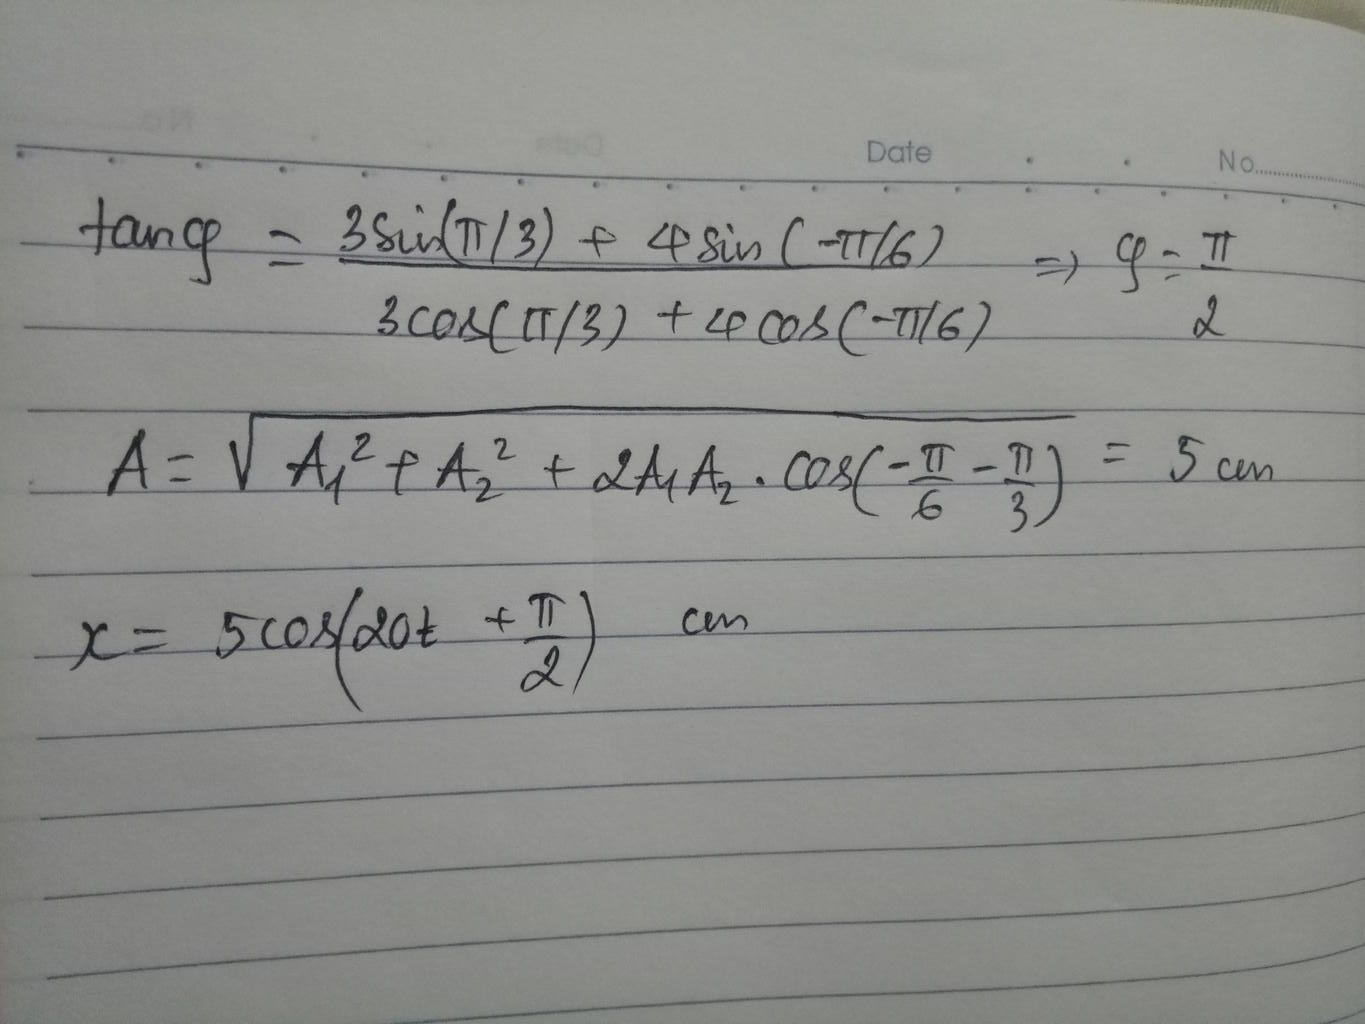 Date No.
tan φ = 3sin(π/3) + 4sin(-π/6) / 3cos(π/3) + 4cos(-π/6) => φ = π/2
A = √(A₁² + A₂² + 2A₁A₂ . cos(-π/6 - π/3)) = 5 cm
x = 5cos(20t + π/2) cm